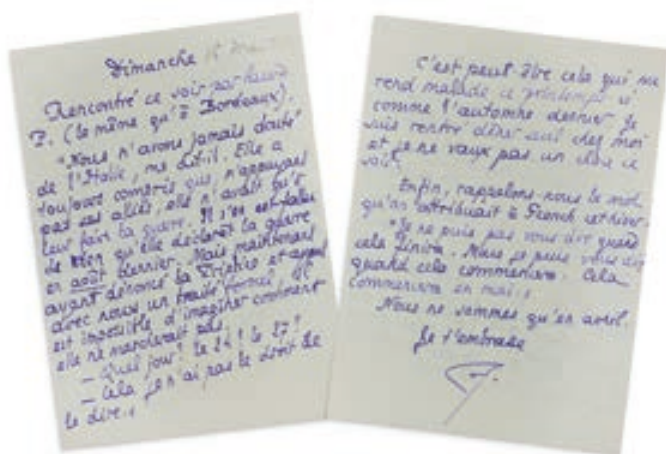 Dimanche
Rencontré ce soir par hasard
P. (le même qu'à Bordeaux).
"Nous n'avons jamais douté
de l'Italie, me dit-il. Elle a
toujours compris que, n'appuyant
pas ses alliés, elle n'avait qu'à
leur faire la guerre. Il s'en est fallu
de rien qu'elle déclarât la guerre
en août dernier. Mais maintenant
ayant dénoncé la Triplice et
avec nous un traité formel, il
est impossible d'imaginer comment
elle ne marcherait pas.
— Quel jour? le 24? le 27?
— Cela je n'ai pas le droit de
le dire..
C'est peut-être cela qui me
rend malade ce printemps ici
comme l'automne dernier. Je
suis rentré dîner seul chez moi
et je ne vaux pas un clou ce
soir.
Enfin, rappelons-nous le mot
qu'on attribuait à French cet hiver.
"Je ne puis pas vous dire quand
cela finira. Mais je puis vous dire
quand cela commencera. Cela
commencera en mai..
Nous ne sommes qu'en avril.
Je t'embrasse